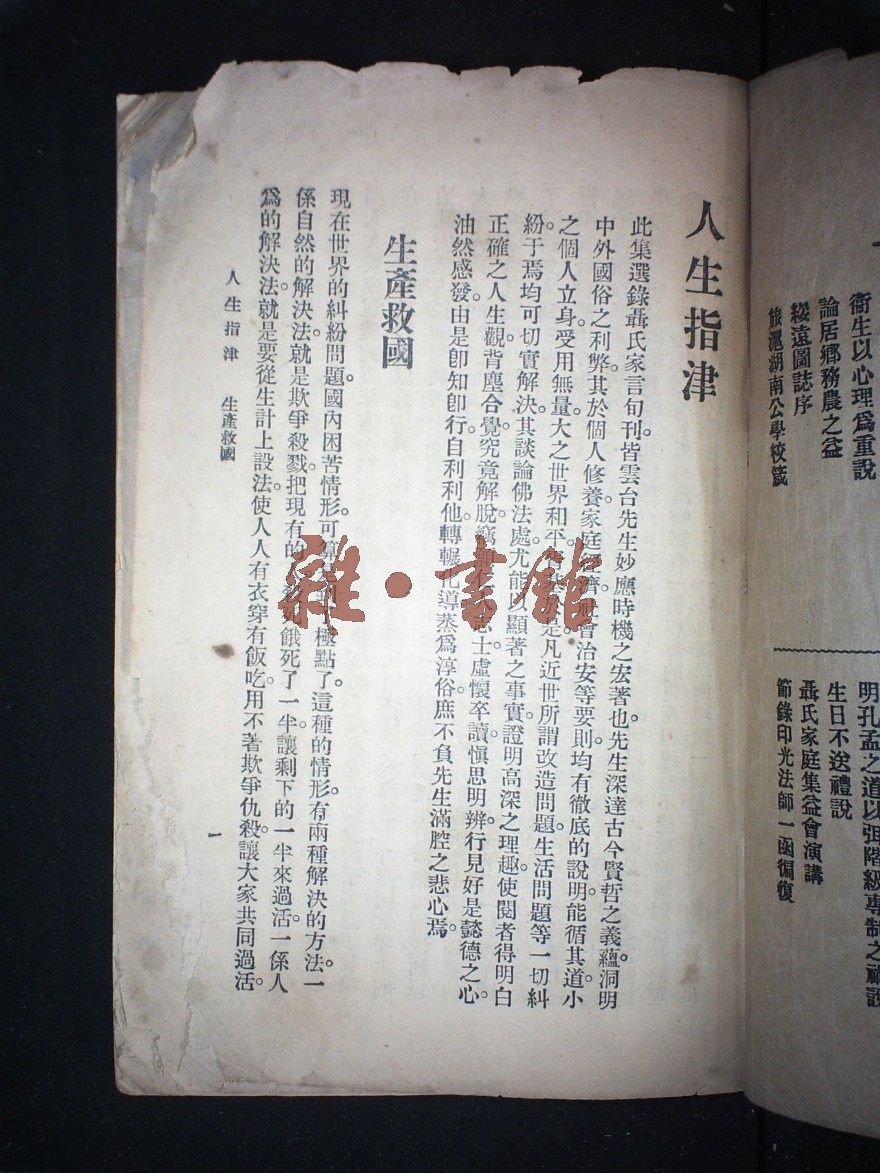 衞生以心理爲重說
論居鄉務農之益
綏遠圖誌序
旅滬湖南公學校箴
明孔孟之道以弭階級專制之禍說
生日不送禮說
聶氏家庭集益會演講
節錄印光法師一函徧復
人生指津
此集選錄聶氏家言旬刊。皆雲台先生妙應時機之宏著也。先生深達古今賢哲之義蘊。洞明
中外國俗之利弊。其於個人修養。家庭經濟。社會治安等要則。均有徹底的說明。能循其道。小
之個人立身。受用無量。大之世界和平是凡近世所謂改造問題。生活問題等。一切糾
紛于焉均可切實解決。其談論佛法處。尤能以顯著之事實。證明高深之理趣。使閱者得明白
正確之人生觀。背塵合覺。究竟解脫。竊願志士。虛懷卒讀。愼思明辨。行見好是懿德之心。
油然感發。由是卽知卽行。自利利他。轉輾化導。蒸爲淳俗。庶不負先生滿腔之悲心焉。
生產救國
現在世界的糾紛問題。國內困苦情形。可算極點了。這種的情形。有兩種解決的方法。一
係自然的解決法。就是欺爭殺戮。把現有的殺死餓死了一半。讓剩下的一半來過活。一係人
爲的解決法。就是要從生計上設法。使人人有衣穿有飯吃。用不著欺爭仇殺。讓大家共同過活。
人生指津 生產救國
一
雜·書館